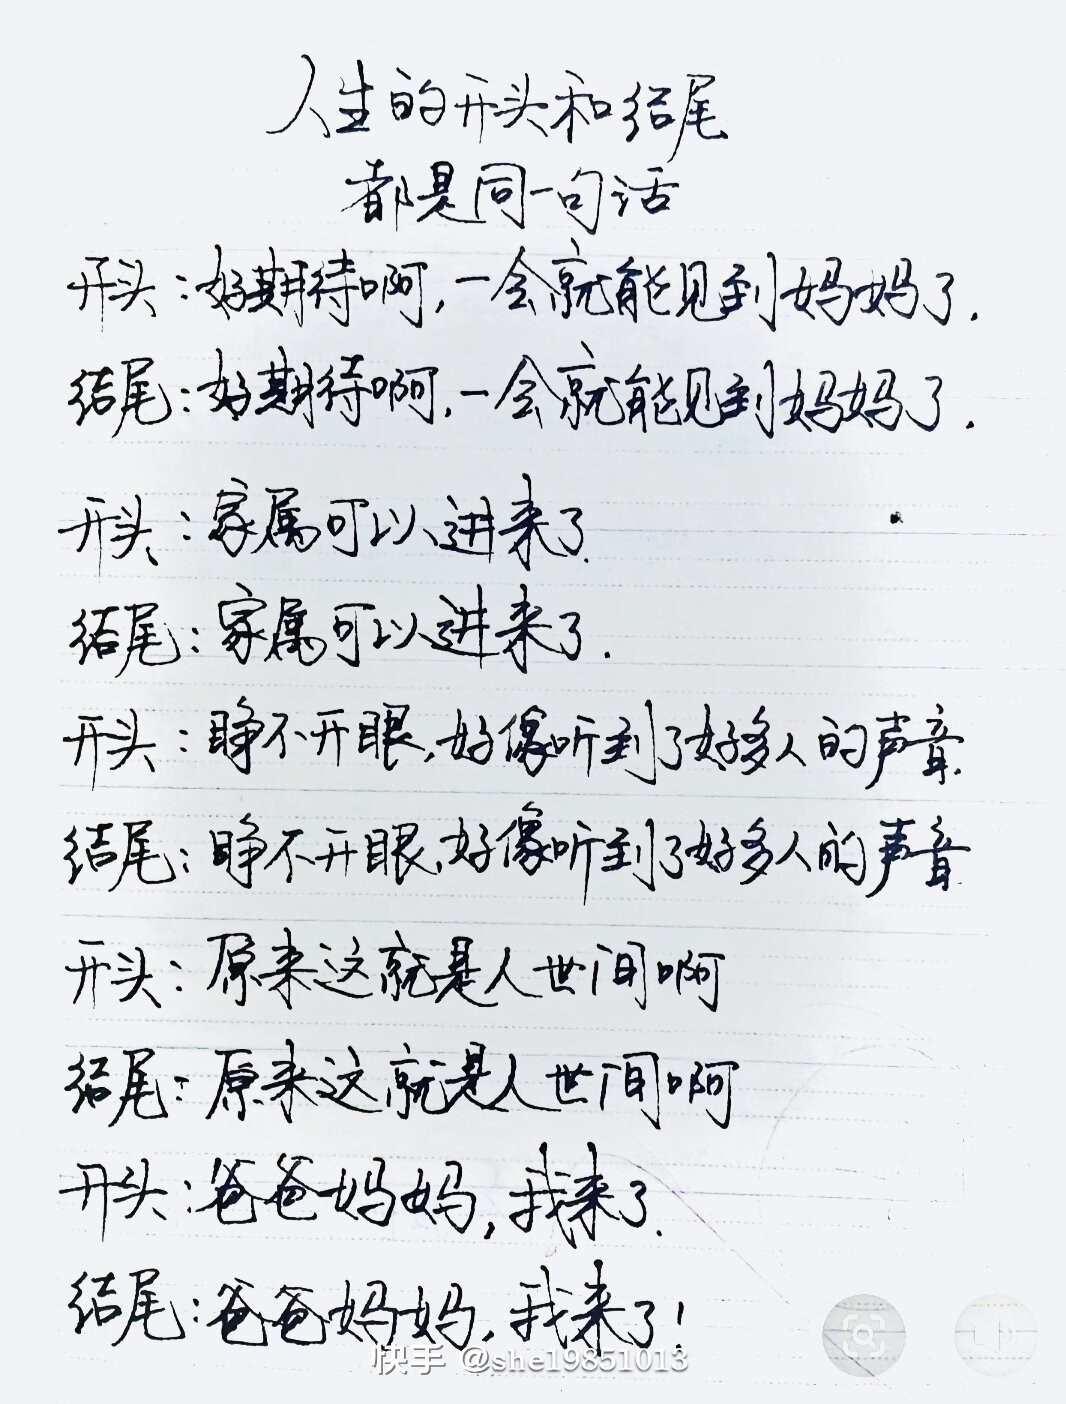 人生的开头和结尾
都是同一句话
开头：好期待啊，一会就能见到妈妈了.
结尾：好期待啊，一会就能见到妈妈了.
开头：家属可以进来了.
结尾：家属可以进来了.
开头：睁不开眼，好像听到了好多人的声音.
结尾：睁不开眼，好像听到了好多人的声音
开头：原来这就是人世间啊
结尾：原来这就是人世间啊
开头：爸爸妈妈，我来了.
结尾：爸爸妈妈，我来了！
快手 @she19851013